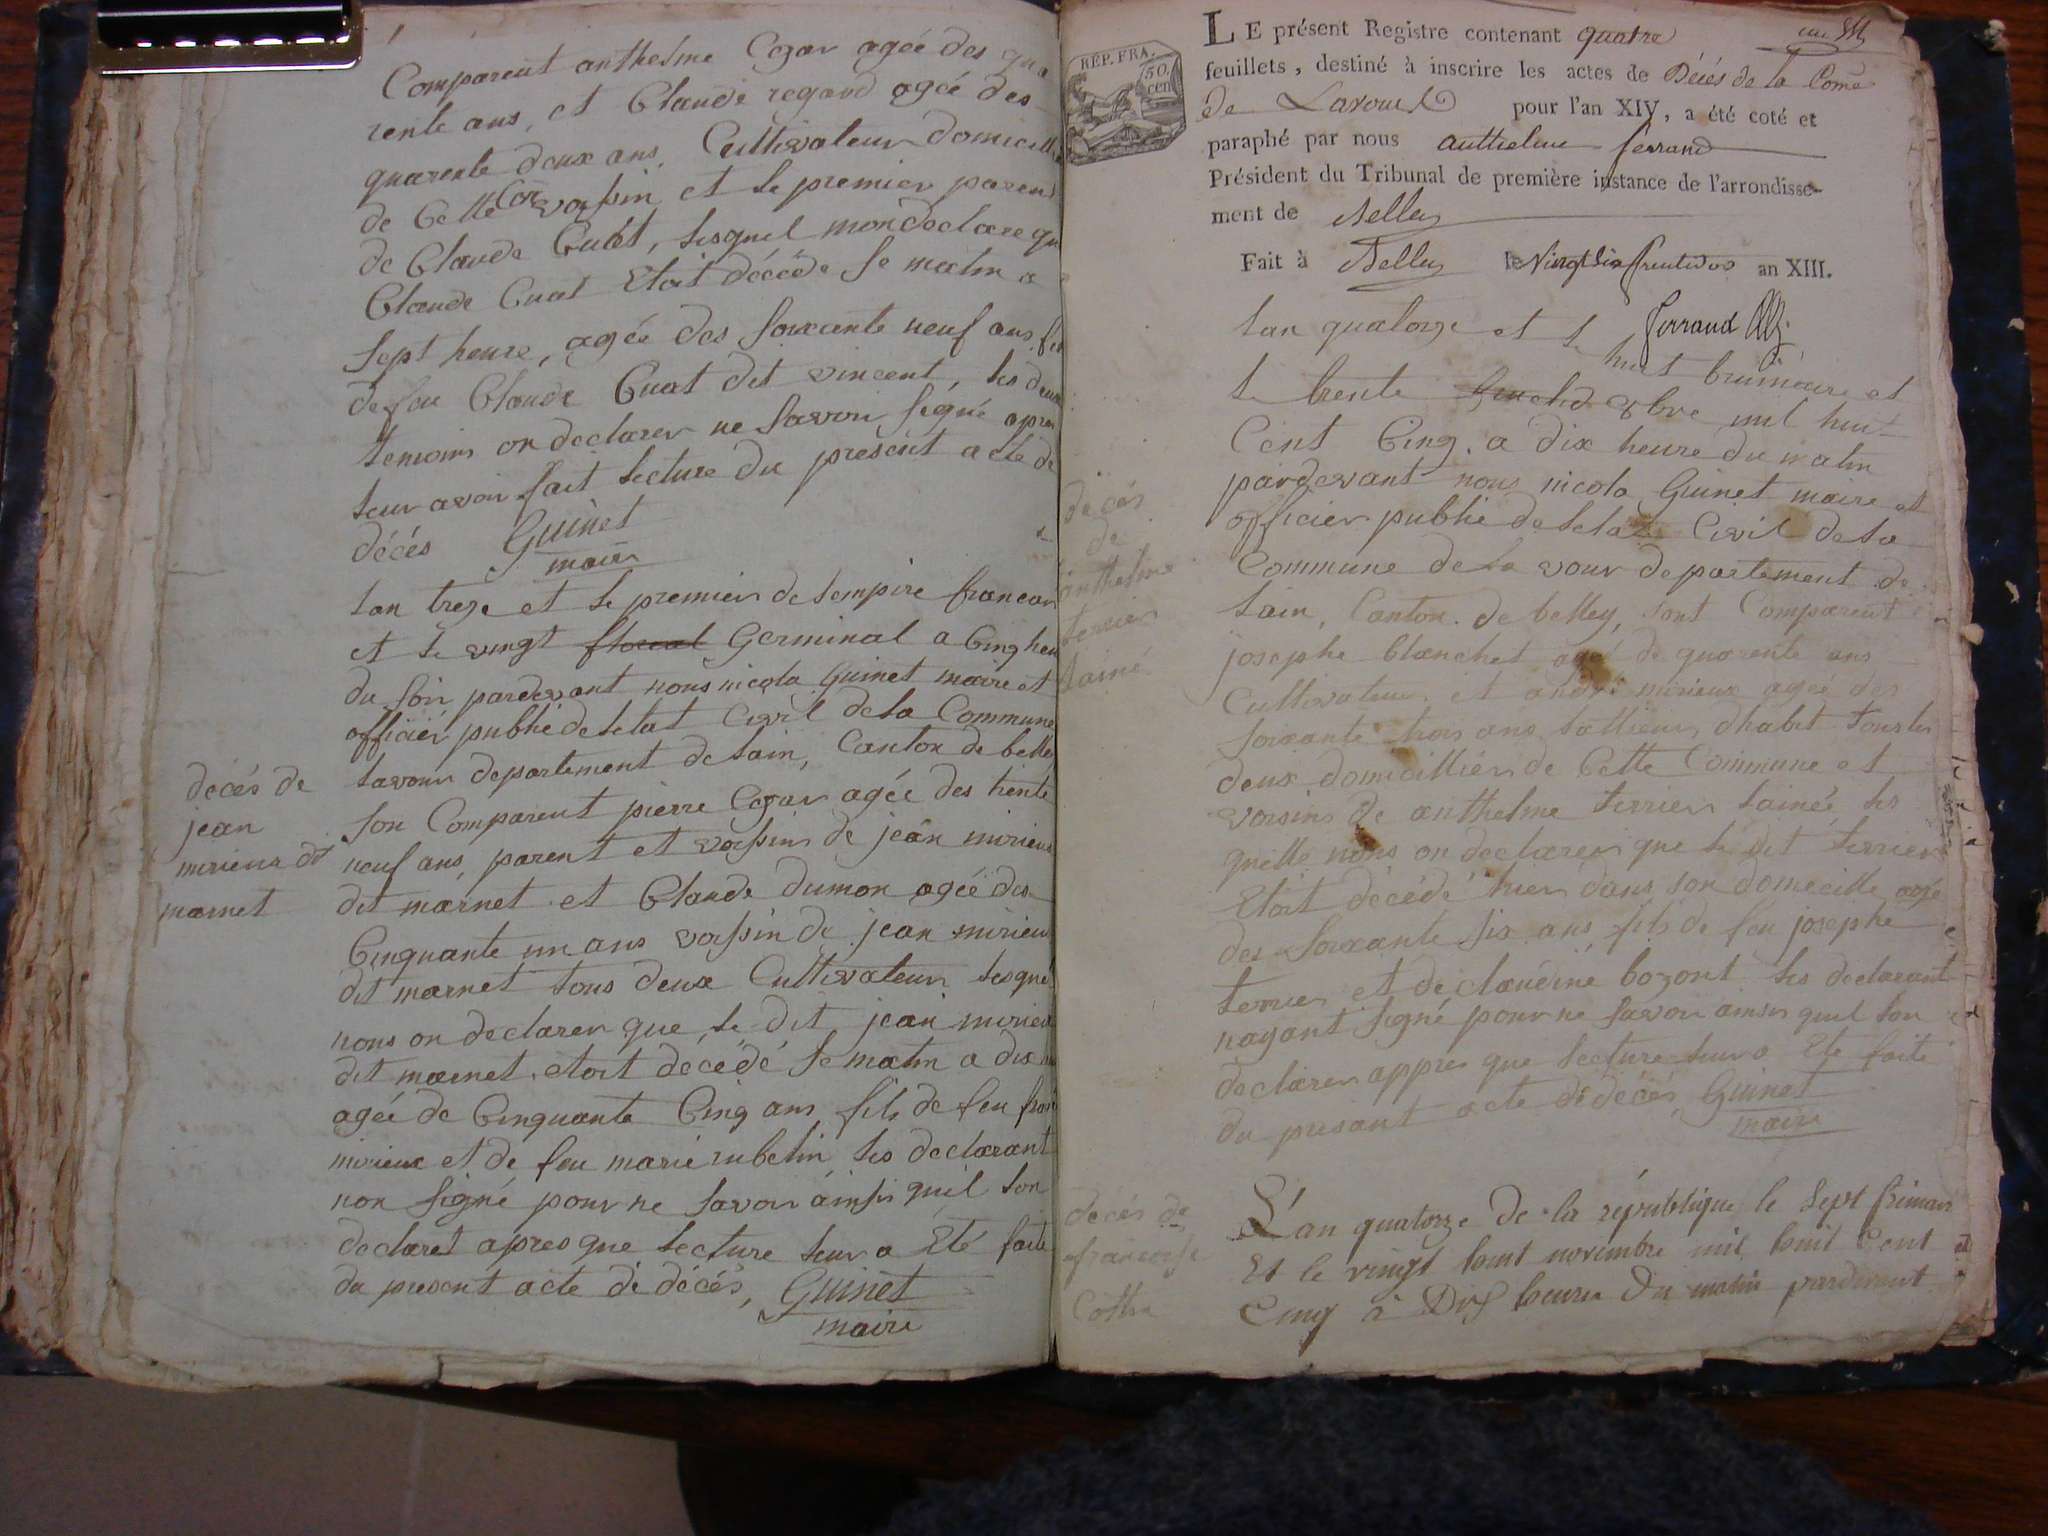 Comparent anthelme Cezar agée des qua
rente ans, et Claude regard agée des
quarente deux ans, Cultivateur domicill
de Cette Coe voissin et le premier parens
de Claude Cuat, lesquel mon declare qu
Claude Cuat Etoit décédé se matin a
sept heure, agée des soixcente neuf ans, fils
de feu Claude Cuat dit vincent, les deux
temoins on declarer ne savoir signé apres
leur avoir fait lecture du present acte de
décés Guinet
maire
lan treze et le premier de lempire francais
et le vingt floreal Germinal a Cinq heu
du soir pardevant nous nicola Guinet maire et
officier publié de letat Civil de la Commune
lavour departement de lain, Canton de belle
son Comparent pierre Cezar agée des trente
neuf ans, parent et voissin de jean mirieux
dit marnet et Claude dumon agée des
Cinquante un ans voissin de jean mirieu
dit marnet tous deux Cultivateur lesquel
nous on declarer que le dit jean mirieu
dit marnet etoit décédé se matin a dix
agée de Cinquante Cinq ans fils de feu
mirieux et de feu marie rubelin les declarant
non signé pour ne savoir ainsis quil son
declaret apres que lecture leur a Eté faite
du present acte de décés, Guinet
maire
décés de
jean
mirieux dt
marnet
LE présent Registre contenant quatre
feuillets, destiné à inscrire les actes de Décès de la Come
de Lavour pour l'an XIV, a été coté et
paraphé par nous anthelme ferrand
Président du Tribunal de première instance de l'arrondisse-
ment de Belley
Fait à Belley le vingt six fructidor an XIII.
RÉP. FRA.
50. cen
ferrand
lan quatorze et le huit brumaire et
le trente 8bre mil huit
Cent Cinq, a dix heure du matin
pardevant nous nicola Guinet maire et
officier publié de letat Civil de la
Commune de la vour departement de
lain, Canton de belley, sont Comparent
josephe blanchet agé de quarente ans
Cultivateur et andré mirieux agée des
soixante trois ans tallieur dhabit tous les
deux domicilliér de Cette Commune et
voisins de anthelme terrier lainée, les
quelle nous on declarer que le dit terrier
Etoit décédé hier dans son domicille agée
des soixante six ans, fils de feu josephe
terrier et de claudine bozont les declarant
nayant signé pour ne savoir ainsis quil son
declarer appres que lecture leur a Eté faite
du presant acte de décés Guinet
maire
décés
de
anthelme
terrier
lainé
L'an quatorze de la république le sept frimaire
Et le vingt huit novembre mil huit Cent
Cinq à Dix heures Du matin pardevant
décés de
francoise
Cotha